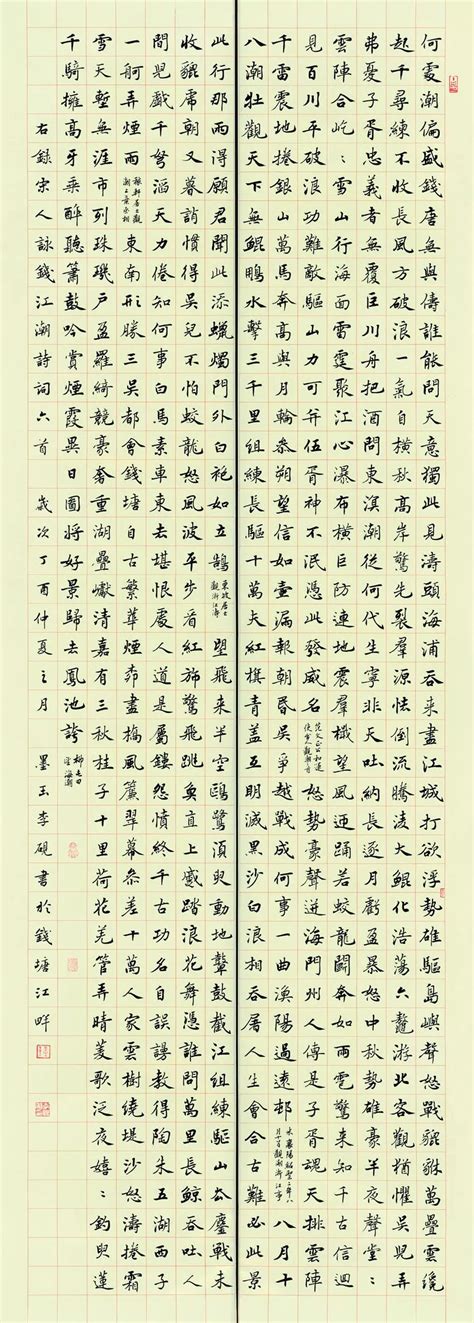 何處潮偏盛錢唐無與儔誰能問天意獨此見濤頭海浦吞來盡江城打欲浮勢雄驅島嶼聲怒戰貔貅萬疊雲纔
起千尋練不收長風方破浪一氣自橫秋高岸驚先裂羣源怯倒流騰凌大鯤化浩蕩六鰲游北客觀猶懼吳兒弄
弗憂子胥忠義者無覆巨川舟把酒問東溟潮從何代生寧非天吐納長逐月虧盈暴怒中秋勢雄豪半夜聲堂〻
雲陣合屹〻雪山行海面雷霆聚江心瀑布橫巨防連地震羣檝望風迎踊若蛟龍鬭奔如雨雹驚來知千古信迴
見百川平破浪功難敵驅山力可并伍胥神不泯憑此發威名范文正公和運使舍人觀潮怒勢豪聲迸海門州人傳是子胥魂天排雲陣
千雷震地捲銀山萬馬奔高與月輪參朔望信如壺漏報朝昏吳爭越戰成何事一曲漁陽過遠邨米襄陽紹聖二年八月十八日觀潮浙江亭八月十
八潮壯觀天下無鯤鵬水擊三千里組練長驅十萬夫紅旗青蓋互明滅黑沙白浪相吞屠人生會合古難必此景
此行那兩得願君聞此添蠟燭門外白袍如立鵠東坡居士觀浙江濤朢飛來半空鷗鷺須臾動地鼙鼓截江組練驅山去鏖戰未
收貔虎朝又暮誚慣得吳兒不怕蛟龍怒風波平步看紅旆驚飛跳魚直上蹙踏浪花舞憑誰問萬里長鯨吞吐人
間兒戲千弩滔天力倦知何事白馬素車東去堪恨處人道是屬鏤怨憤終千古功名自誤謾教得陶朱五湖西子
一舸弄煙雨稼軒居士觀潮上葉丞相東南形勝三吳都會錢塘自古繁華煙柳畫橋風簾翠幕參差十萬人家雲樹繞堤沙怒濤捲霜
雪天塹無涯市列珠璣戶盈羅綺競豪奢重湖疊巘清嘉有三秋桂子十里荷花羌管弄晴菱歌泛夜嬉〻釣臾蓮
千騎擁高牙乘醉聽簫鼓吟賞煙霞異日圖將好景歸去鳳池誇柳屯田望海潮
右錄宋人詠錢江潮詩詞六首 歲次丁酉仲夏之月 墨玉李硯書於錢塘江畔